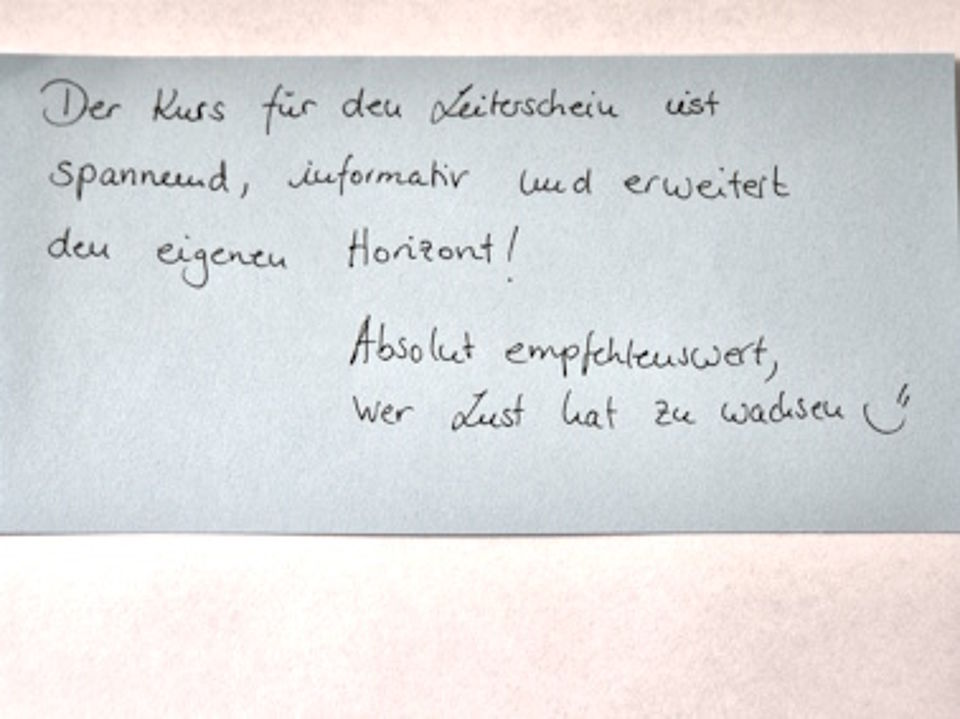 Der Kurs für den Leiterschein ist
spannend, informativ und erweitert
den eigenen Horizont!
Absolut empfehlenswert,
wer Lust hat zu wachsen